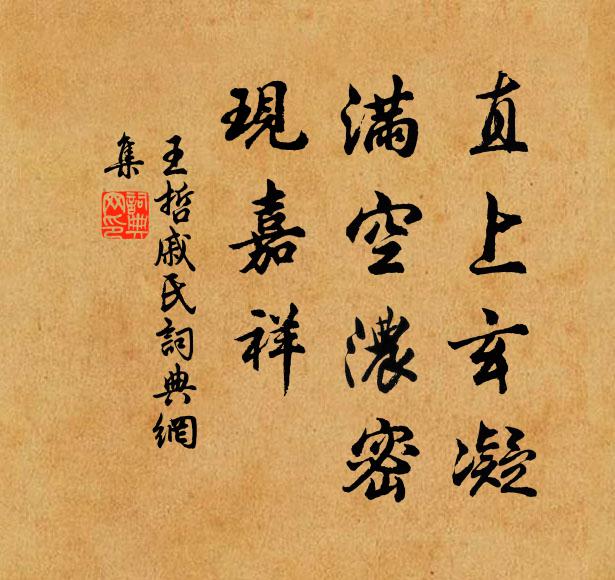 直上玄凝
滿空濃密
現嘉祥
王哲戚氏詞典網
集
詞典網印